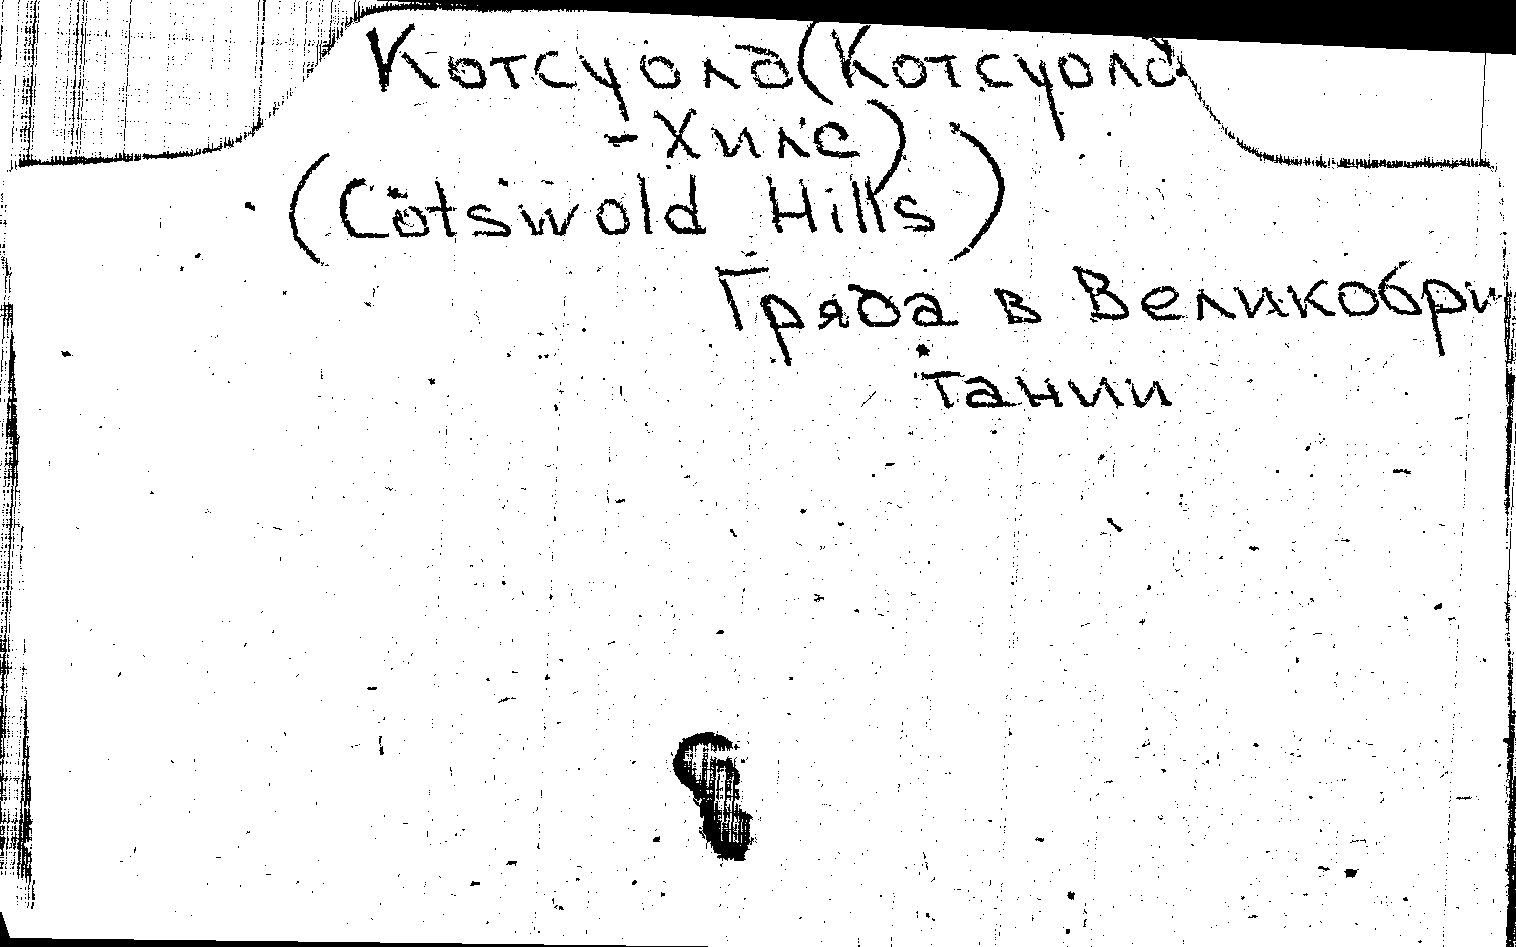 Котсуолд (Котсуолд
-Хилс)
(Cotswold Hills)
Гряда в Великобри
тании